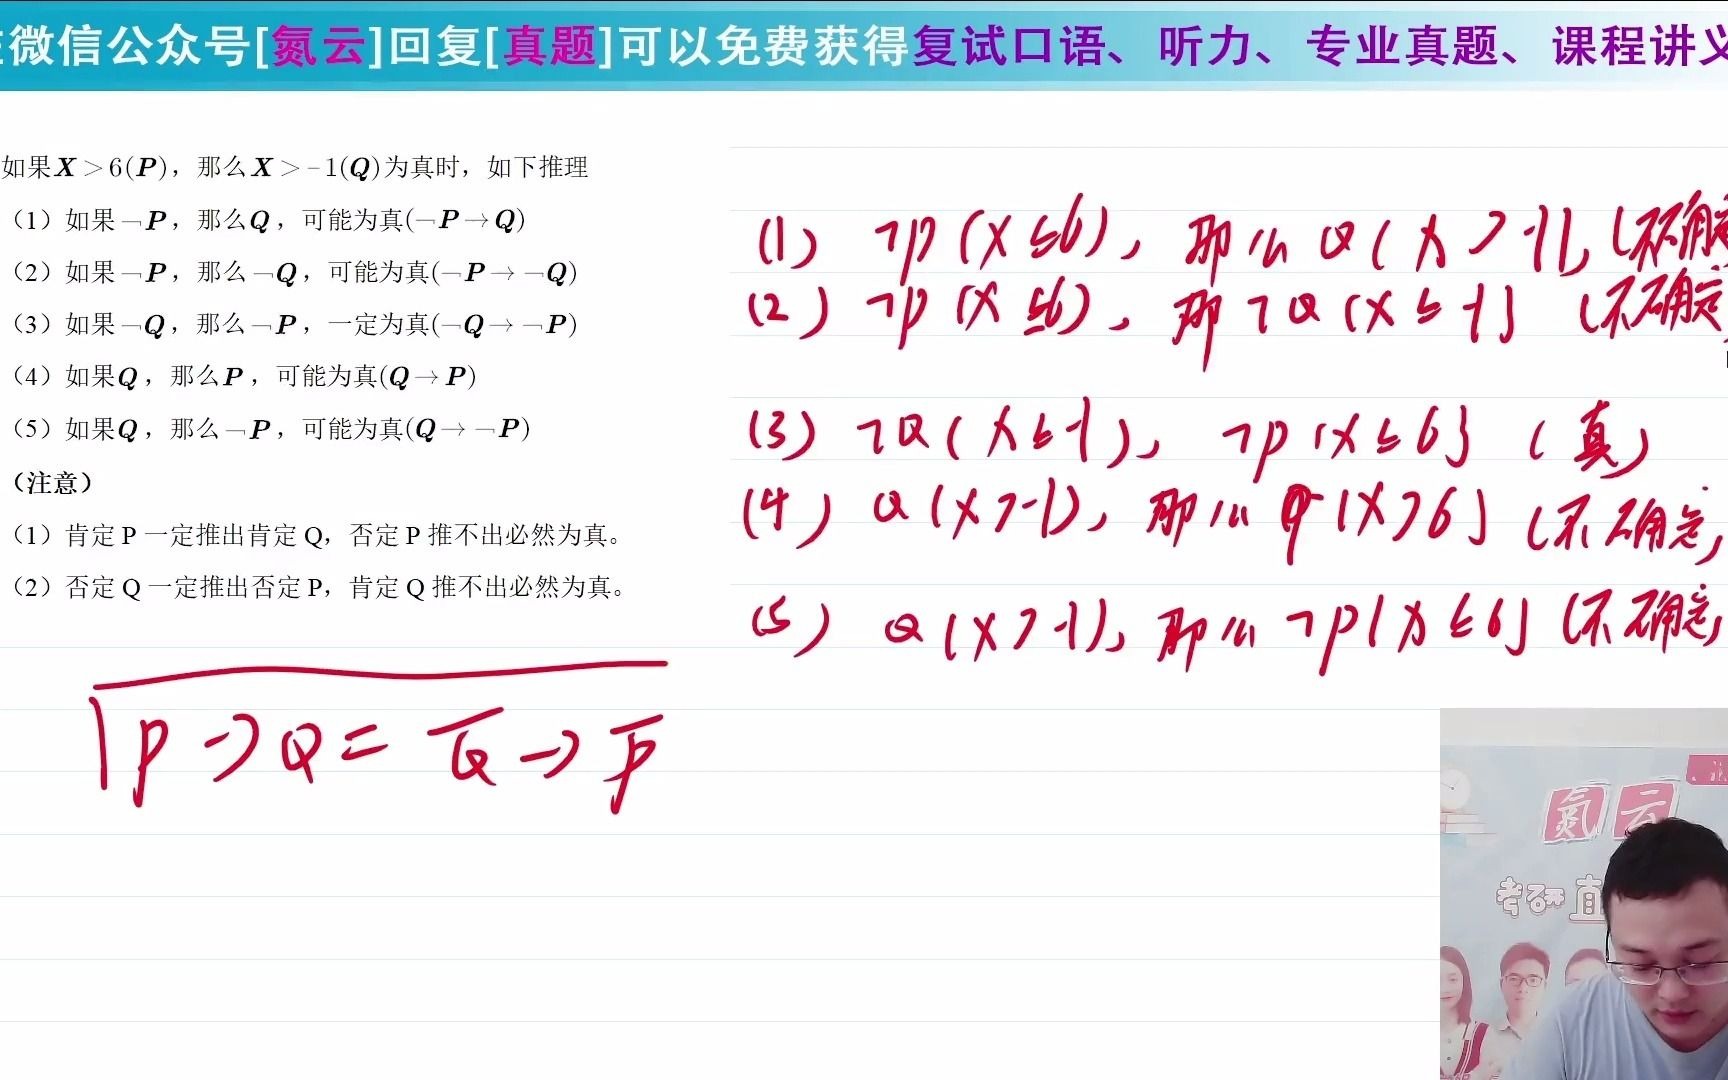 微信公众号[氮云]回复[真题]可以免费获得复试口语、听力、专业真题、课程讲义
如果X>6(P)，那么X>-1(Q)为真时，如下推理
（1）如果¬P，那么Q，可能为真(¬P→Q)
（2）如果¬P，那么¬Q，可能为真(¬P→¬Q)
（3）如果¬Q，那么¬P，一定为真(¬Q→¬P)
（4）如果Q，那么P，可能为真(Q→P)
（5）如果Q，那么¬P，可能为真(Q→¬P)
（注意）
（1）肯定P一定推出肯定Q，否定P推不出必然为真。
（2）否定Q一定推出否定P，肯定Q推不出必然为真。
P→Q = Q̅→P̅
(1) ¬P(X≤6)，那么Q(X>-1)，(不确定
(2) ¬P(X≤6)，那¬Q(X≤-1) (不确定)
(3) ¬Q(X≤-1)，¬P(X≤6) (真)
(4) Q(X>-1)，那么P(X>6) (不确定)
(5) Q(X>-1)，那么¬P(X≤6) (不确定)
氮云
考研直